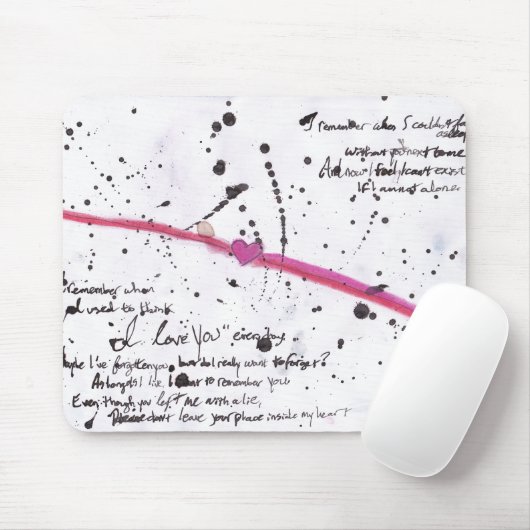 I remember when I couldn't fall
asleep
Without you next to me
And now I feel I can't exist
If I am not alone
I remember when
I used to think
"I love you" everyday.
Maybe I've forgotten you, but do I really want to forget?
As long as I live, I want to remember you
Even though you left me with a lie,
Please don't leave your place inside my heart